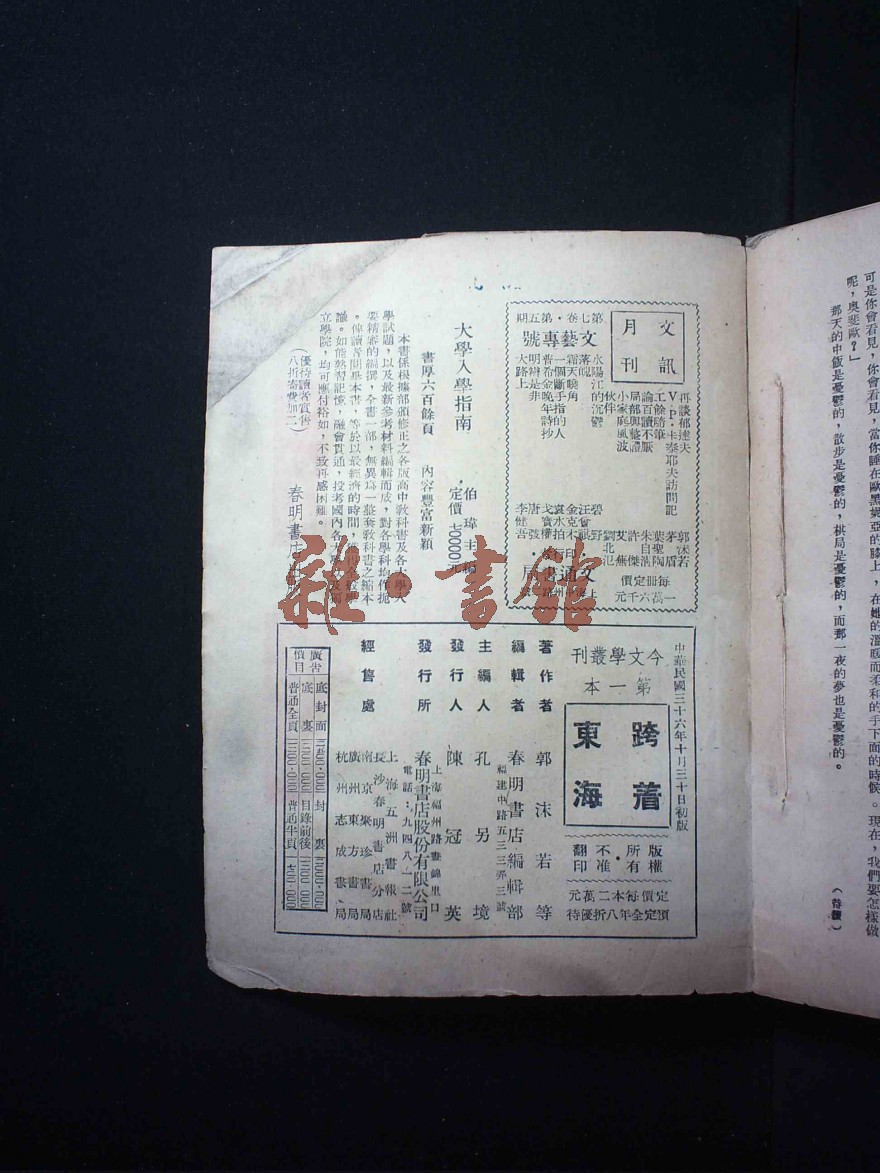 可是你會看見，你會看見，當你睡在歐黑妮亞的膝上，在她的溫暖而柔利的手下面的時候。現在，我們要怎樣做
呢，奧斐歐？」
那天的中飯是憂鬱的，散步是憂鬱的，棋局是憂鬱的，而那一夜的夢也是憂鬱的。
（待續）
文訊
月刊
第七卷・第五期
文藝專號
再談郁達夫
郭沫若
V・P・卡泰耶夫訪問記
茅盾
工餘隨筆
葉聖陶
論百讀不厭
朱自清
局部與整體
許傑
小家庭風波
艾蕪
伙伴
劉北汜
水陽江的沉鬱
碧野
落魄
汪曾祺
霜天曉角
一個斷手指的人
普希金晚年詩抄
明辨是非
大路上
李健吾
每冊定價
一萬六千元
文通書局
大學入學指南
伯瑋主編
書厚六百餘頁　內容豐富新穎
定價七〇〇〇〇元
本書係根據部頒修正之各版高中教科書及各大學入
學試題，以及最新參考材料編輯而成，對各學科均作扼
要精審的編撰，全書一部，無異爲一整套教科書之縮本
。俾讀者閱畢本書，等於以最經濟的時間，
識。如能熟習記憶，融會貫通，投考國內各大學及獨
立學院，均可應付裕如，不致再感困難。
（優待讀者實售
八折寄費加二）
春明書店出版
雜・書館
中華民國三十六年十月三十日初版
今文學叢刊
第一本
跨着
東海
版權所有・不准翻印
定價每本二萬元
預定全年八折優待
著作者　郭沫若等
編輯者　春明書店編輯部
福建中路五三三弄三號
主編人　孔另境
發行人　陳冠英
上海福州路晝錦里口
發行所　春明書店股份有限公司
電話：九四八一二號
經售處
上海五洲書報社
長沙春明書店分店
南京聚珍書局
廣州東方書局
杭州志成書局
廣告價目
底封面
底裏
封裏
目錄前後
普通全頁
普通半頁